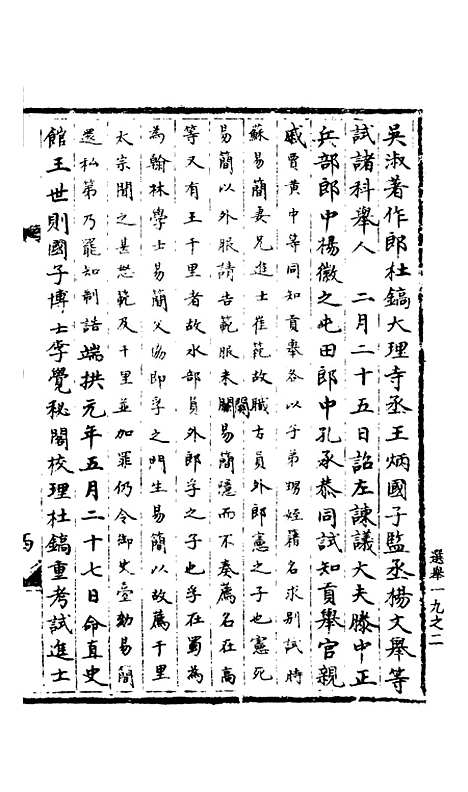 吳淑著作郎杜鎬大理寺丞王炳國子監丞楊文舉等
試諸科舉人　二月二十五日詔左諫議大夫滕中正
兵部郎中楊徽之屯田郎中孔承恭同試知貢舉官親
戚賈黃中等同知貢舉各以子弟甥姪籍名求別試時
蘇易簡妻兄進士崔範故職方員外郎憲之子也憲死
易簡以外服請告範服未闋易簡隱而不奏薦名在高
闋
等又有王千里者故水部員外郎孚之子也孚在蜀為
為翰林學士易簡父協即孚之門生易簡以故薦千里
太宗聞之甚怒範及千里並加罪仍令御史臺劾易簡
還私第乃罷知制誥端拱元年五月二十七日命直史
館王世則國子博士李覺秘閣校理杜鎬重考試進士
選舉一九之二